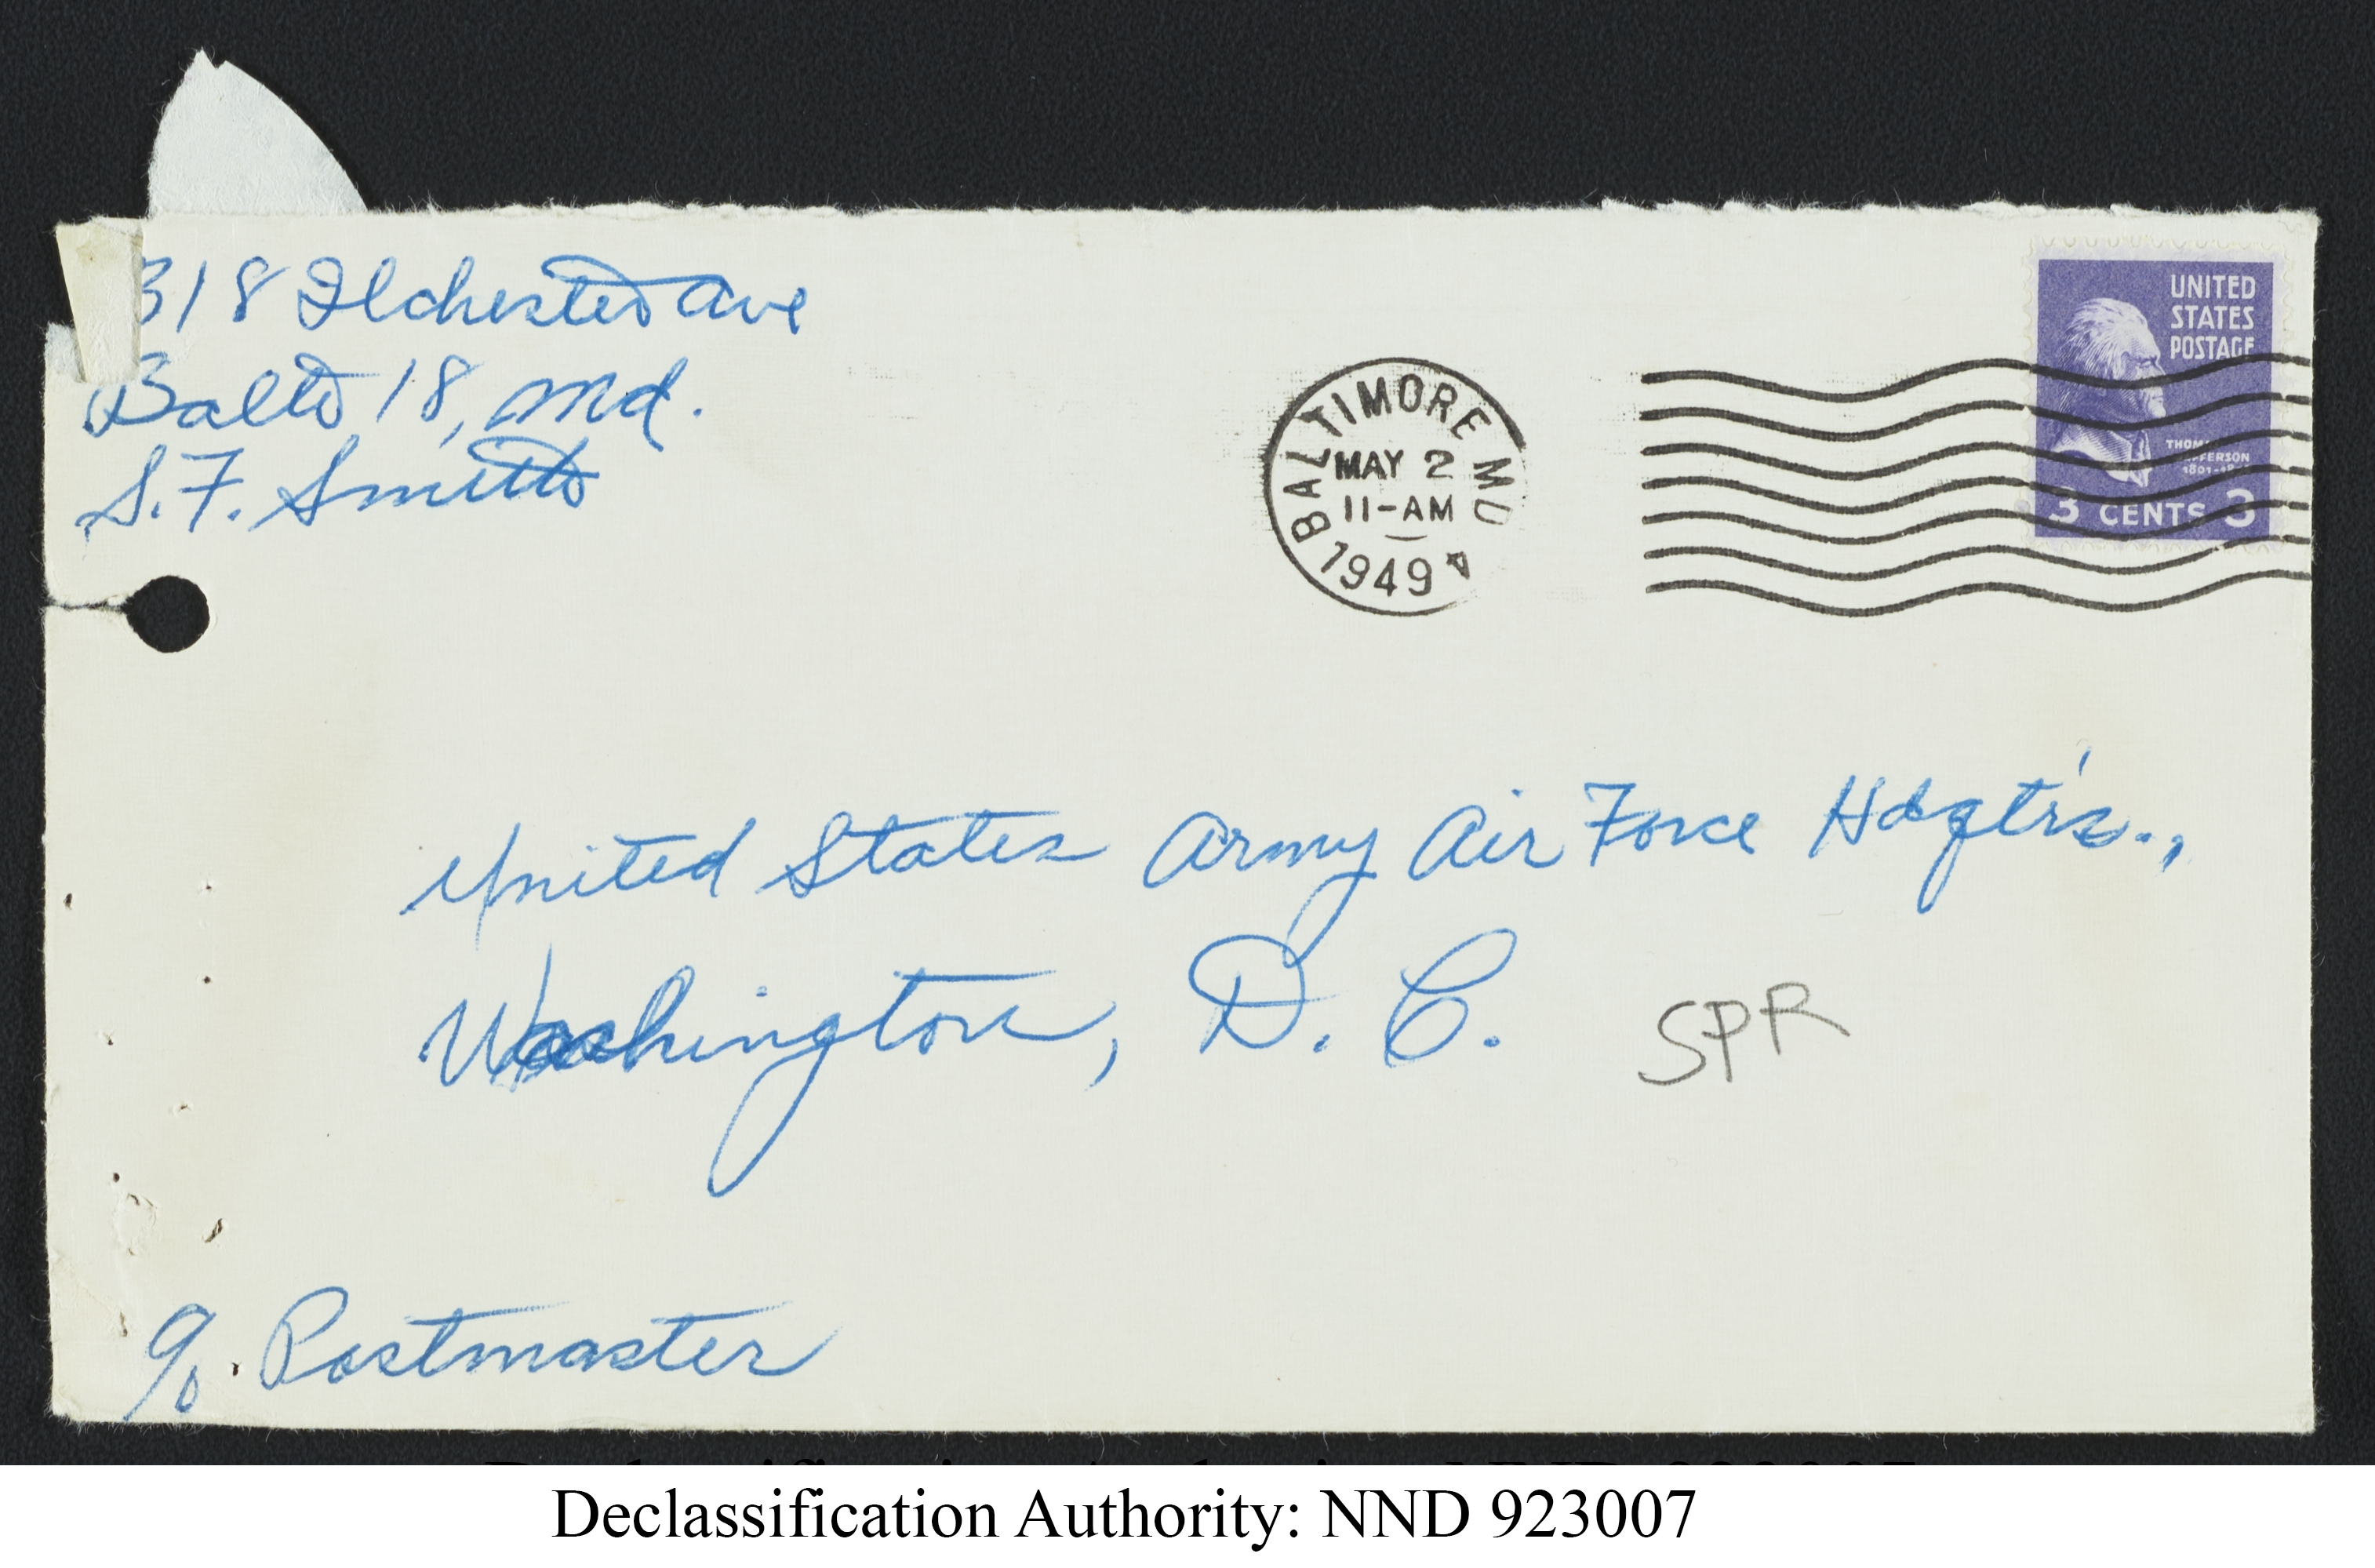 318 Ilchester Ave
Balto 18, Md.
S. F. Smith
BALTIMORE MD
MAY 2
11-AM
1949
UNITED
STATES
POSTAGE
3 CENTS 3
United States Army Air Force Hdqtr's.,
Washington, D. C.
SPR
c/o Postmaster
Declassification Authority: NND 923007